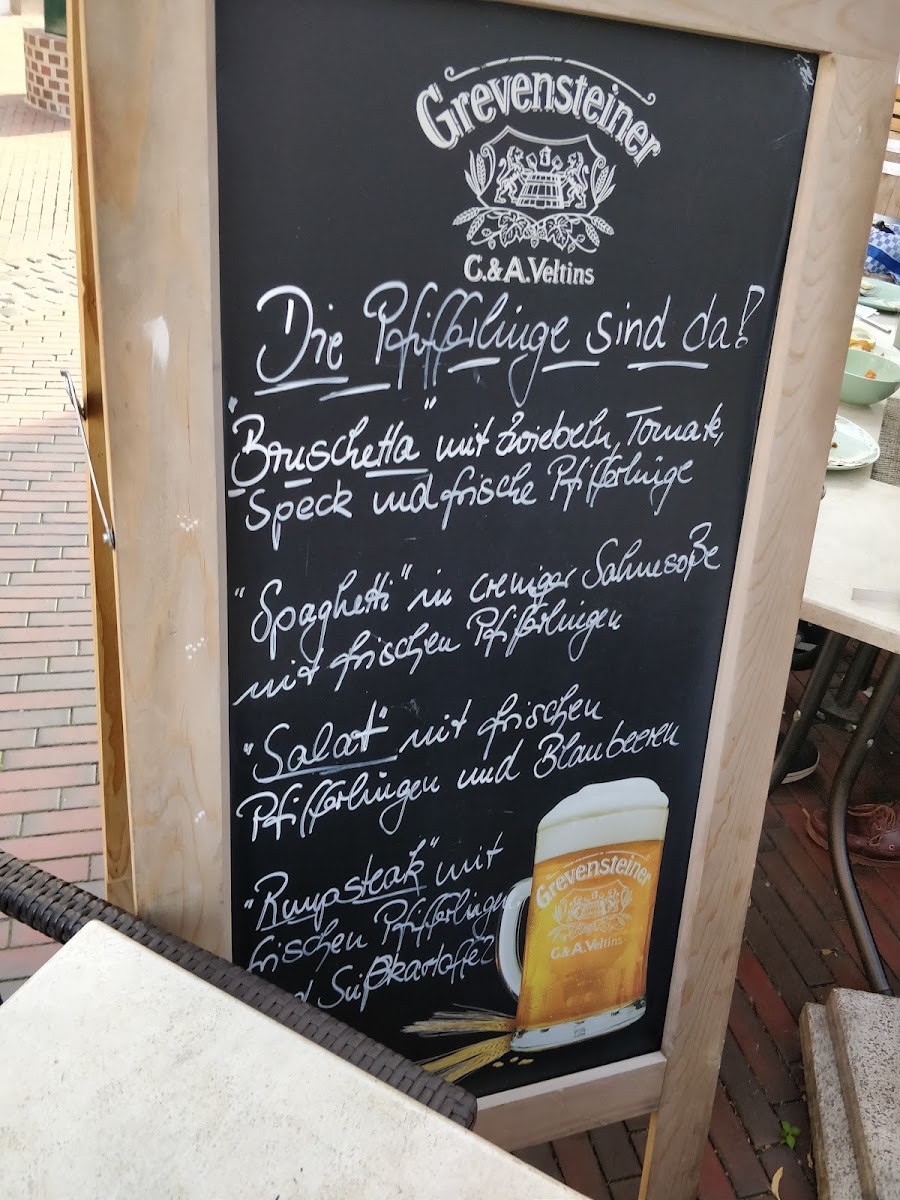 Grevensteiner
C.&A. Veltins
Die Pfifferlinge sind da!
"Bruschetta" mit Zwiebeln, Tomate,
Speck und frische Pfifferlinge
"Spaghetti" in cremiger Sahnesoße
mit frischen Pfifferlingen
"Salat" mit frischen
Pfifferlingen und Blaubeeren
"Rumpsteak" mit
frischen Pfifferlingen
Süßkartoffel
Grevensteiner
C.&A. Veltins